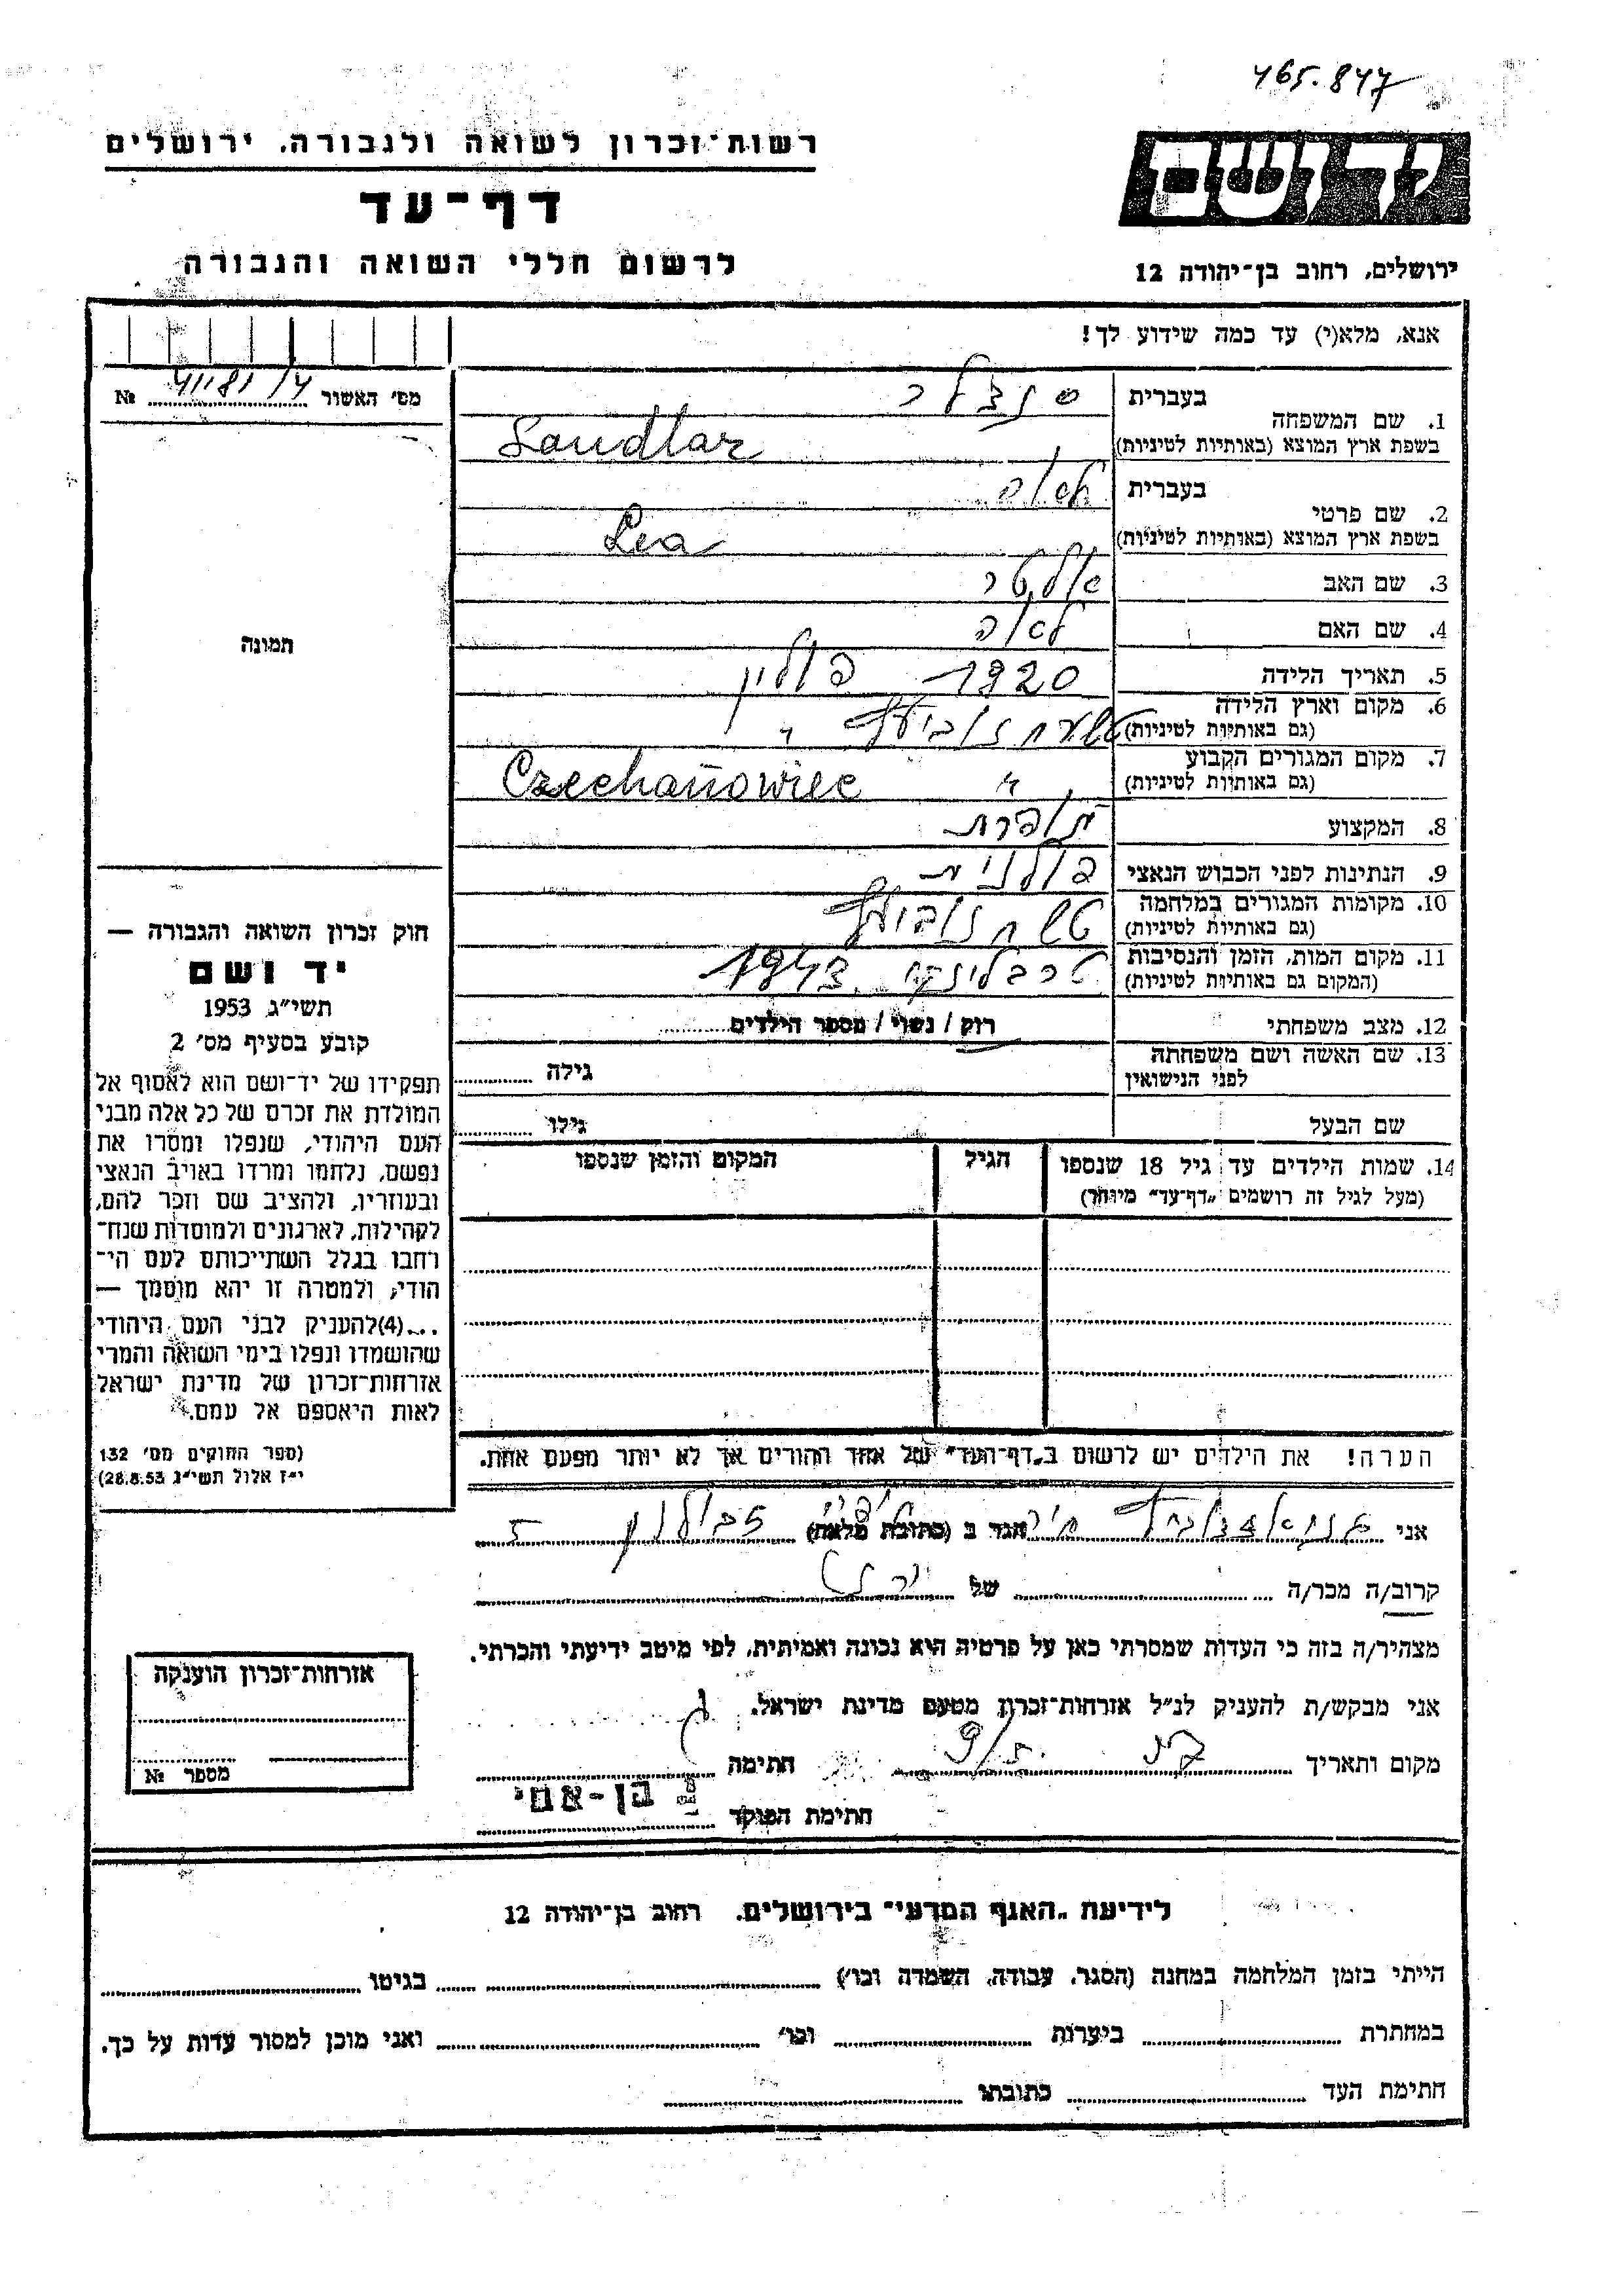 465.847
רשות־זכרון לשואה ולגבורה, ירושלים
דף־עד
לרשום חללי השואה והגבורה
ידושם
ירושלים, רחוב בן־יהודה 12
אנא, מלא(י) עד כמה שידוע לך!
מס׳ האשור 41181/4 №
1. שם המשפחה
בעברית
בשפת ארץ המוצא (באותיות לטיניות) Sandlar
2. שם פרטי
בעברית לאה
בשפת ארץ המוצא (באותיות לטיניות) Lea
3. שם האב
4. שם האם
5. תאריך הלידה 1920 פולין
6. מקום וארץ הלידה
(גם באותיות לטיניות)
7. מקום המגורים הקבוע
(גם באותיות לטיניות) " Czechanowiec
8. המקצוע תופרת
9. הנתינות לפני הכבוש הנאצי פולנית
10. מקומות המגורים במלחמה
(גם באותיות לטיניות)
11. מקום המות, הזמן והנסיבות טרבלינקי 1943
(המקום גם באותיות לטיניות)
12. מצב משפחתי רוק / נשוי / מספר הילדים
13. שם האשה ושם משפחתה
לפני הנישואין
גילה
שם הבעל
גילו
14. שמות הילדים עד גיל 18 שנספו
(מעל לגיל זה רושמים "דף־עד" מיוחד)
הגיל
המקום והזמן שנספו
הערה! את הילדים יש לרשום ב"דף־העד" של אחד ההורים אך לא יותר מפעם אחת.
תמונה
חוק זכרון השואה והגבורה —
יד ושם
תשי״ג 1953
קובע בסעיף מס׳ 2
תפקידו של יד־ושם הוא לאסוף אל
המולדת את זכרם של כל אלה מבני
העם היהודי, שנפלו ומסרו את
נפשם, נלחמו ומרדו באויב הנאצי
ובעוזריו, ולהציב שם וזכר להם,
לקהילות, לארגונים ולמוסדות שנח־
רחבו בגלל השתייכותם לעם הי־
הודי, ולמטרה זו יהא מוסמך —
...(4)להעניק לבני העם היהודי
שהושמדו ונפלו בימי השואה והמרי
אזרחות־זכרון של מדינת ישראל
לאות היאספם אל עמם.
(ספר החוקים מס׳ 132
י״ז אלול תשי״ג 28.8.53)
אני הגר ב (כתובת מלאה) זבולון 5
קרוב/ה מכר/ה של
מצהיר/ה בזה כי העדות שמסרתי כאן על פרטיה היא נכונה ואמיתית, לפי מיטב ידיעתי והכרתי.
אני מבקש/ת להעניק לנ״ל אזרחות־זכרון מטעם מדינת ישראל.
מקום ותאריך חתימה
חתימת הפוקד בן-אמי
אזרחות־זכרון הוענקה
מספר №
לידיעת "האגף המדעי" בירושלים, רחוב בן־יהודה 12
הייתי בזמן המלחמה במחנה (הסגר, עבודה, השמדה וכו׳) בגיטו
במחתרת ביערות וכו׳ ואני מוכן למסור עדות על כך.
חתימת העד כתובתו